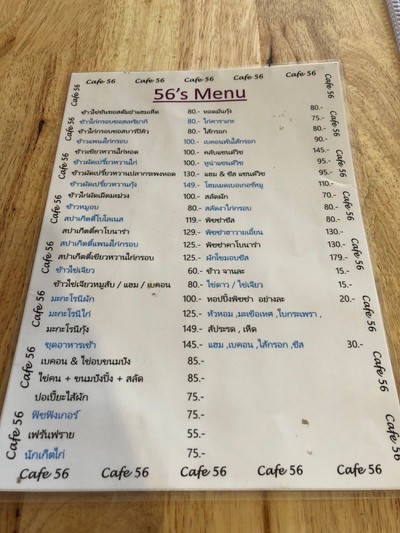 Cafe 56 Cafe 56 Cafe 56 Cafe 56 Cafe 56
56's Menu
ข้าวไข่ข้นซอสต้มยำแฮมเห็ด 80.-
ข้าวไก่กรอบซอสเทริยากิ 80.-
ข้าวไก่กรอบซอสบาร์บีคิว 80.-
ข้าวแพนงไก่กรอบ 100.-
ข้าวเขียวหวานไก่ทอด 100.-
ข้าวผัดเปรี้ยวหวานไก่ 100.-
ข้าวผัดเปรี้ยวหวานปลากระพงทอด 130.-
ข้าวผัดเปรี้ยวหวานกุ้ง 149.-
ข้าวไก่ผัดเม็ดมะม่วง 100.-
ข้าวหมูอบ 80.-
สปาเก็ตตี้โบโลเนส 119.-
สปาเก็ตตี้คาโบนาร่า 129.-
สปาเก็ตตี้แพนงไก่กรอบ 125.-
สปาเก็ตตี้เขียวหวานไก่กรอบ 125.-
ข้าวไข่เจียว 60.-
ข้าวไข่เจียวหมูสับ / แฮม / เบคอน 80.-
มะกะโรนีผัก 100.-
มะกะโรนีไก่ 125.-
มะกะโรนีกุ้ง 149.-
ชุดอาหารเช้า 145.-
เบคอน & ไข่อบขนมปัง 85.-
ไข่คน + ขนมปังปิ้ง + สลัด 85.-
ปอเปี๊ยะไส้ผัก 75.-
ฟิชฟิงเกอร์ 75.-
เฟร้นฟราย 55.-
นักเก็ตไก่ 75.-
ทอดมันกุ้ง 80.-
ไก่คาราเกะ 75.-
ไส้กรอก 80.-
เบคอนพันไส้กรอก 90.-
คลับแซนด์วิช 145.-
ทูน่าแซนด์วิช 95.-
แฮม & ชีส แซนด์วิช 95.-
โฮมเมดเบอเกอร์หมู 110.-
สลัดผัก 70.-
สลัดเงาไก่กรอบ 80.-
พิซซ่าชีส 80.-
พิซซ่าฮาวายเอี้ยน 130.-
พิซซ่าคาโบนาร่า 130.-
ผักโขมอบชีส 179.-
ข้าว จานละ 15.-
ไข่ดาว / ไข่เจียว 15.-
ทอปปิ้งพิซซ่า อย่างละ 20.-
หัวหอม ,มะเขือเทศ ,ใบกระเพรา ,
สัปรอด , เห็ด
แฮม ,เบคอน ,ไส้กรอก ,ชีส 30.-
Cafe 56 Cafe 56 Cafe 56 Cafe 56 Cafe 56
Cafe 56
Cafe 56
Cafe 56
Cafe 56
Cafe 56
Cafe 56
Cafe 56
Cafe 56
Cafe 56
Cafe 56
Cafe 56
Cafe 56
Cafe 56